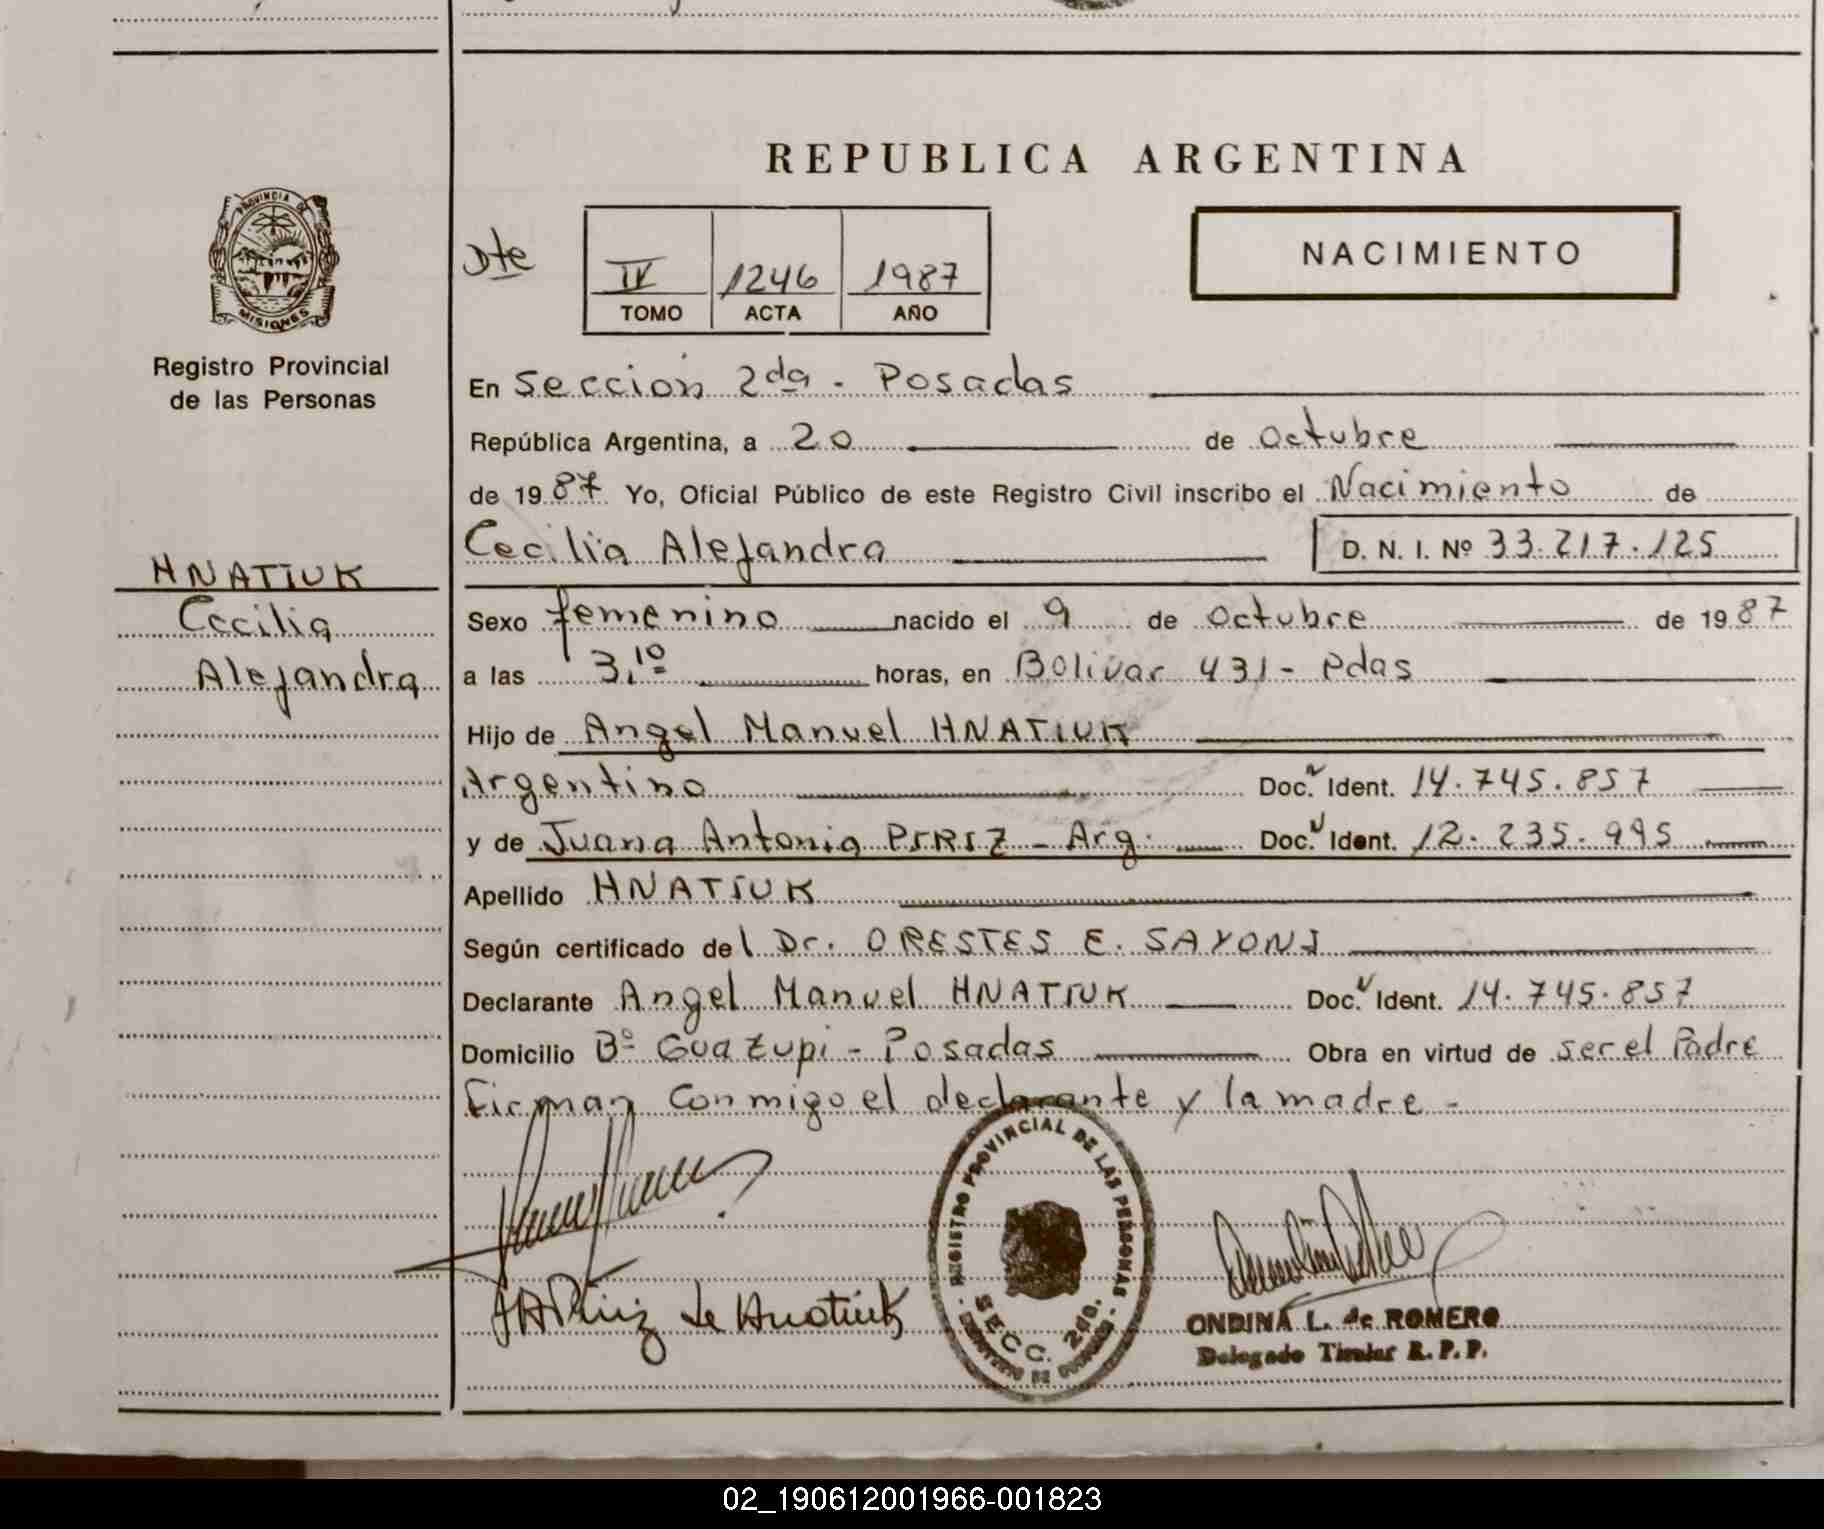 PROVINCIA DE
MISIONES
Registro Provincial
de las Personas
HNATIUK
Cecilia
Alejandra
REPUBLICA ARGENTINA
Dte
IV 1246 1987
TOMO ACTA AÑO
NACIMIENTO
En Sección 2da - Posadas
República Argentina, a 20 de Octubre
de 1987 Yo, Oficial Público de este Registro Civil inscribo el Nacimiento de
Cecilia Alejandra D. N. I. Nº 33.217.125
Sexo femenino nacido el 9 de Octubre de 1987
a las 3,10 horas, en Bolivar 431 - Pdas
Hijo de Angel Manuel HNATIUK
Argentino Doc. Ident. 14.745.857
y de Juana Antonia PEREZ - Arg. Doc. Ident. 12.235.995
Apellido HNATIUK
Según certificado del Dr. ORESTES E. SAYONI
Declarante Angel Manuel HNATIUK Doc. Ident. 14.745.857
Domicilio Bº Guazupi - Posadas Obra en virtud de ser el Padre
Firman conmigo el declarante y la madre -
REGISTRO PROVINCIAL DE LAS PERSONAS
SECC. 2da.
de Hnatiuk
ONDINA L. de ROMERO
Delegado Titular R. P. P.
02_190612001966-001823